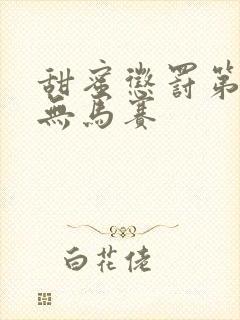 甜蜜懲罰第
無馬賽
白花佬